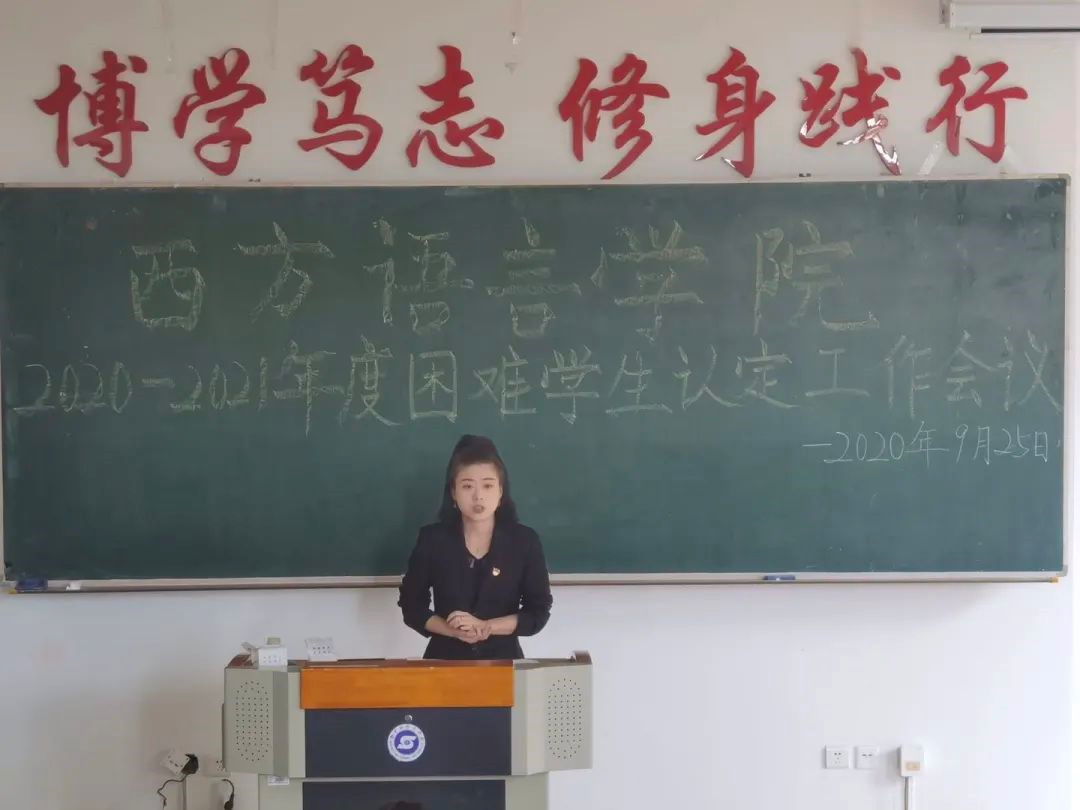 博学笃志 修身践行
西方语言学院
2020-2021年度困难学生认定工作会议
—2020年9月25日